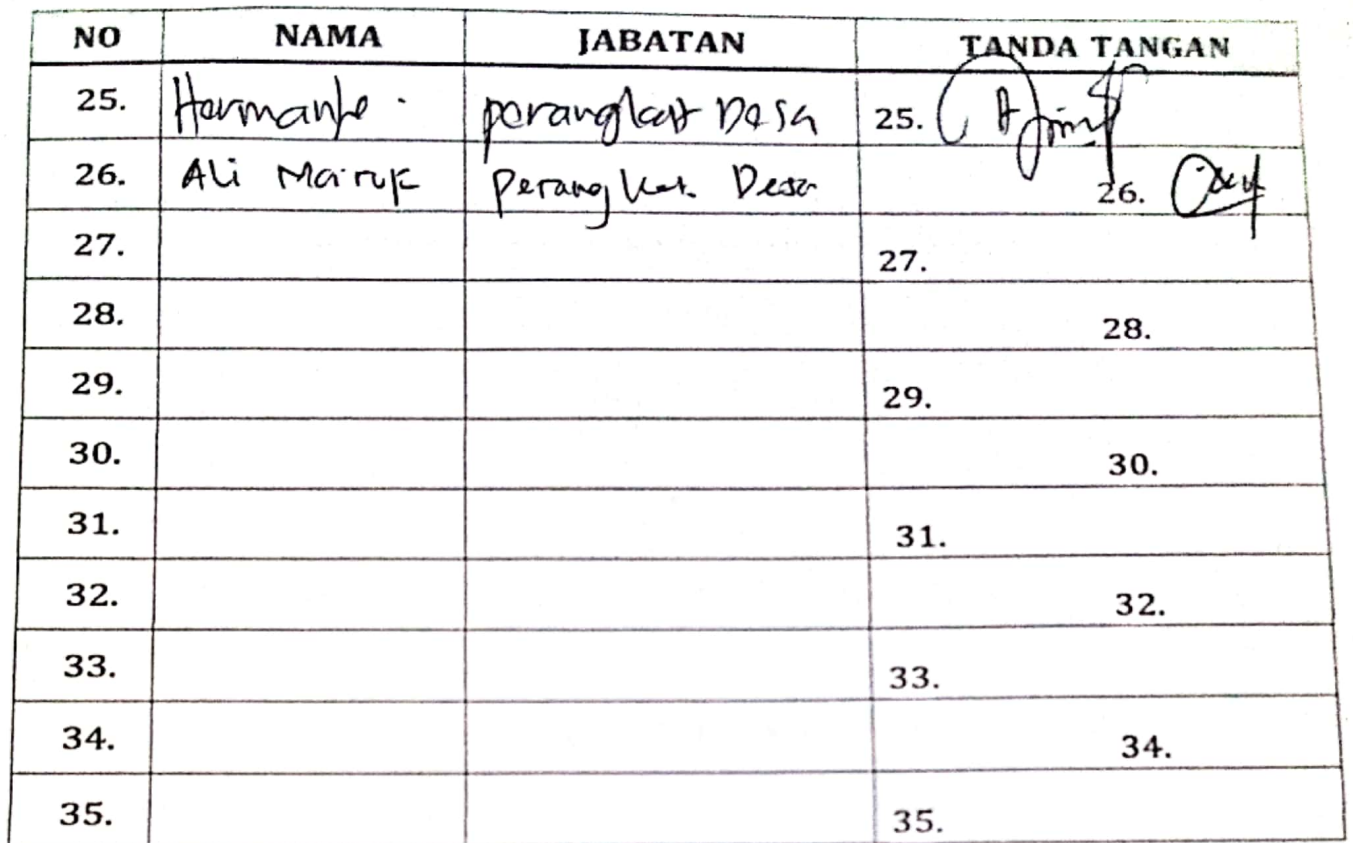 NO NAMA JABATAN TANDA TANGAN
25. Hermanto. perangkat Desa 25.
26. Ali Ma'ruf Perangkat Desa 26.
27. 27.
28. 28.
29. 29.
30. 30.
31. 31.
32. 32.
33. 33.
34. 34.
35. 35.